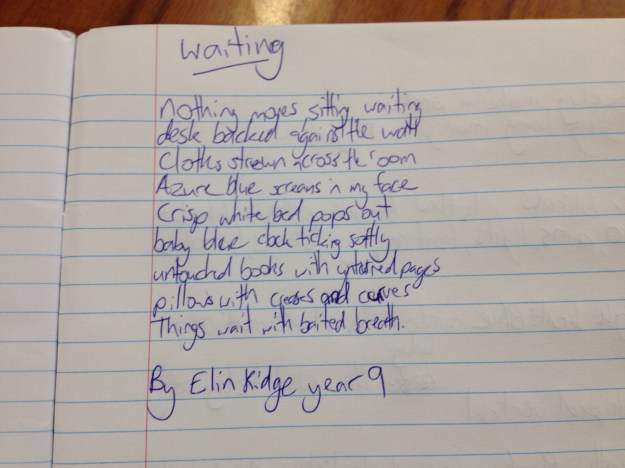 Waiting
nothing moves sitting waiting
desk backed against the wall
Cloths strewn across the room
Azure blue screams in my face
Crisp white bed pops out
baby blue clock ticking softly
untouched books with unturned pages
pillows with creases and curves
Things wait with baited breath.
By Elin Kidge year 9